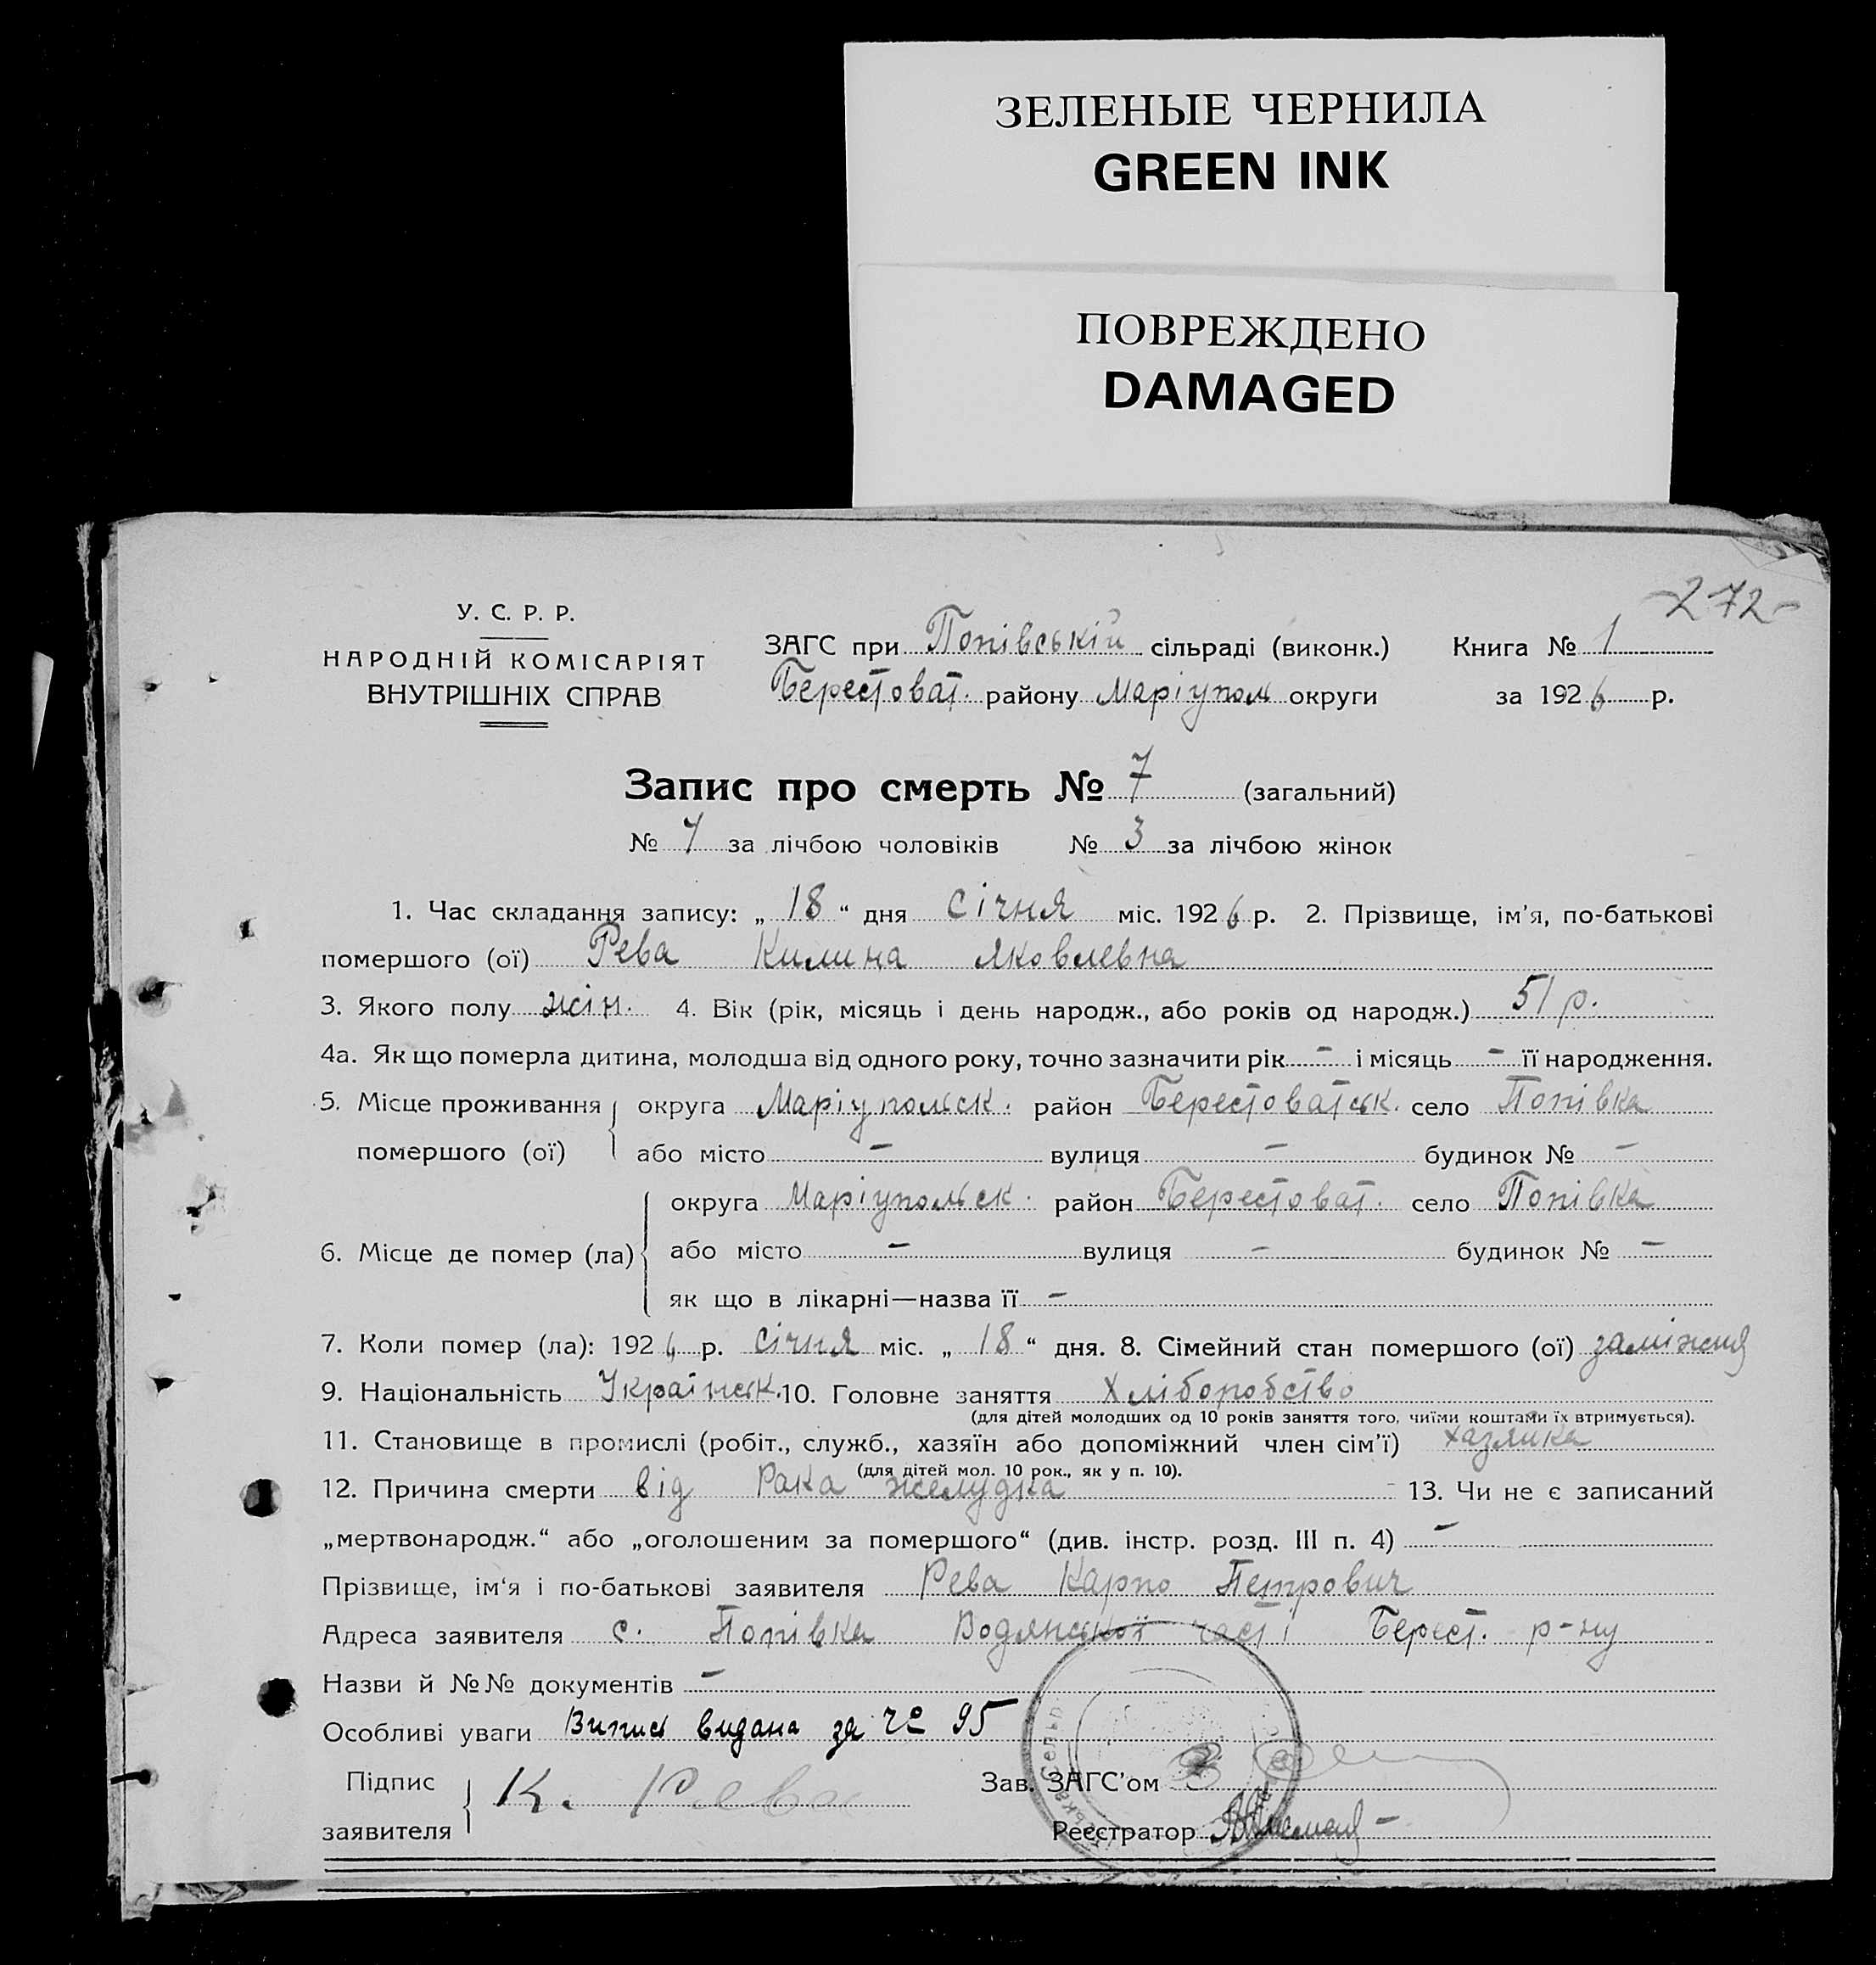 ЗЕЛЕНЫЕ ЧЕРНИЛА
GREEN INK
ПОВРЕЖДЕНО
DAMAGED
-272-
У. С. Р. Р.
НАРОДНІЙ КОМІСАРІЯТ
ВНУТРІШНІХ СПРАВ
ЗАГС при Попівській сільраді (виконк.) Книга № 1
Берестоват. району Маріупол округи за 1926 р.
Запис про смерть № 7 (загальний)
№ 7 за лічбою чоловіків № 3 за лічбою жінок
1. Час складання запису: „ 18 “ дня січня міс. 1926 р. 2. Прізвище, ім’я, по-батькові
помершого (ої) Рева Килина Яковлевна
3. Якого полу жін. 4. Вік (рік, місяць і день народж., або років од народж.) 51 р.
4а. Як що померла дитина, молодша від одного року, точно зазначити рік - і місяць - її народження.
5. Місце проживання округа Маріупольск. район Берестоватськ. село Попівка
помершого (ої) або місто - вулиця - будинок № -
округа Маріупольск. район Берестоват. село Попівка
6. Місце де помер (ла) або місто - вулиця - будинок № -
як що в лікарні—назва її -
7. Коли помер (ла): 1926 р. січня міс. „ 18 “ дня. 8. Сімейний стан помершого (ої) заміжня
9. Національність Українськ. 10. Головне заняття Хліборобство
(для дітей молодших од 10 років заняття того, чиїми коштами їх втримується).
11. Становище в промислі (робіт., служб., хазяїн або допоміжний член сім’ї) хазяйка
(для дітей мол. 10 рок., як у п. 10).
12. Причина смерти від Рака желудка 13. Чи не є записаний
„мертвонародж.“ або „оголошеним за помершого“ (див. інстр. розд. III п. 4) -
Прізвище, ім‘я і по-батькові заявителя Рева Карпо Петрович
Адреса заявителя с. Попівка Водянської часті Берест. р-ну
Назви й №№ документів -
Особливі уваги Випись видана за № 95
Підпис К. Рева Зав. ЗАГС’ом
заявителя Реєстратор